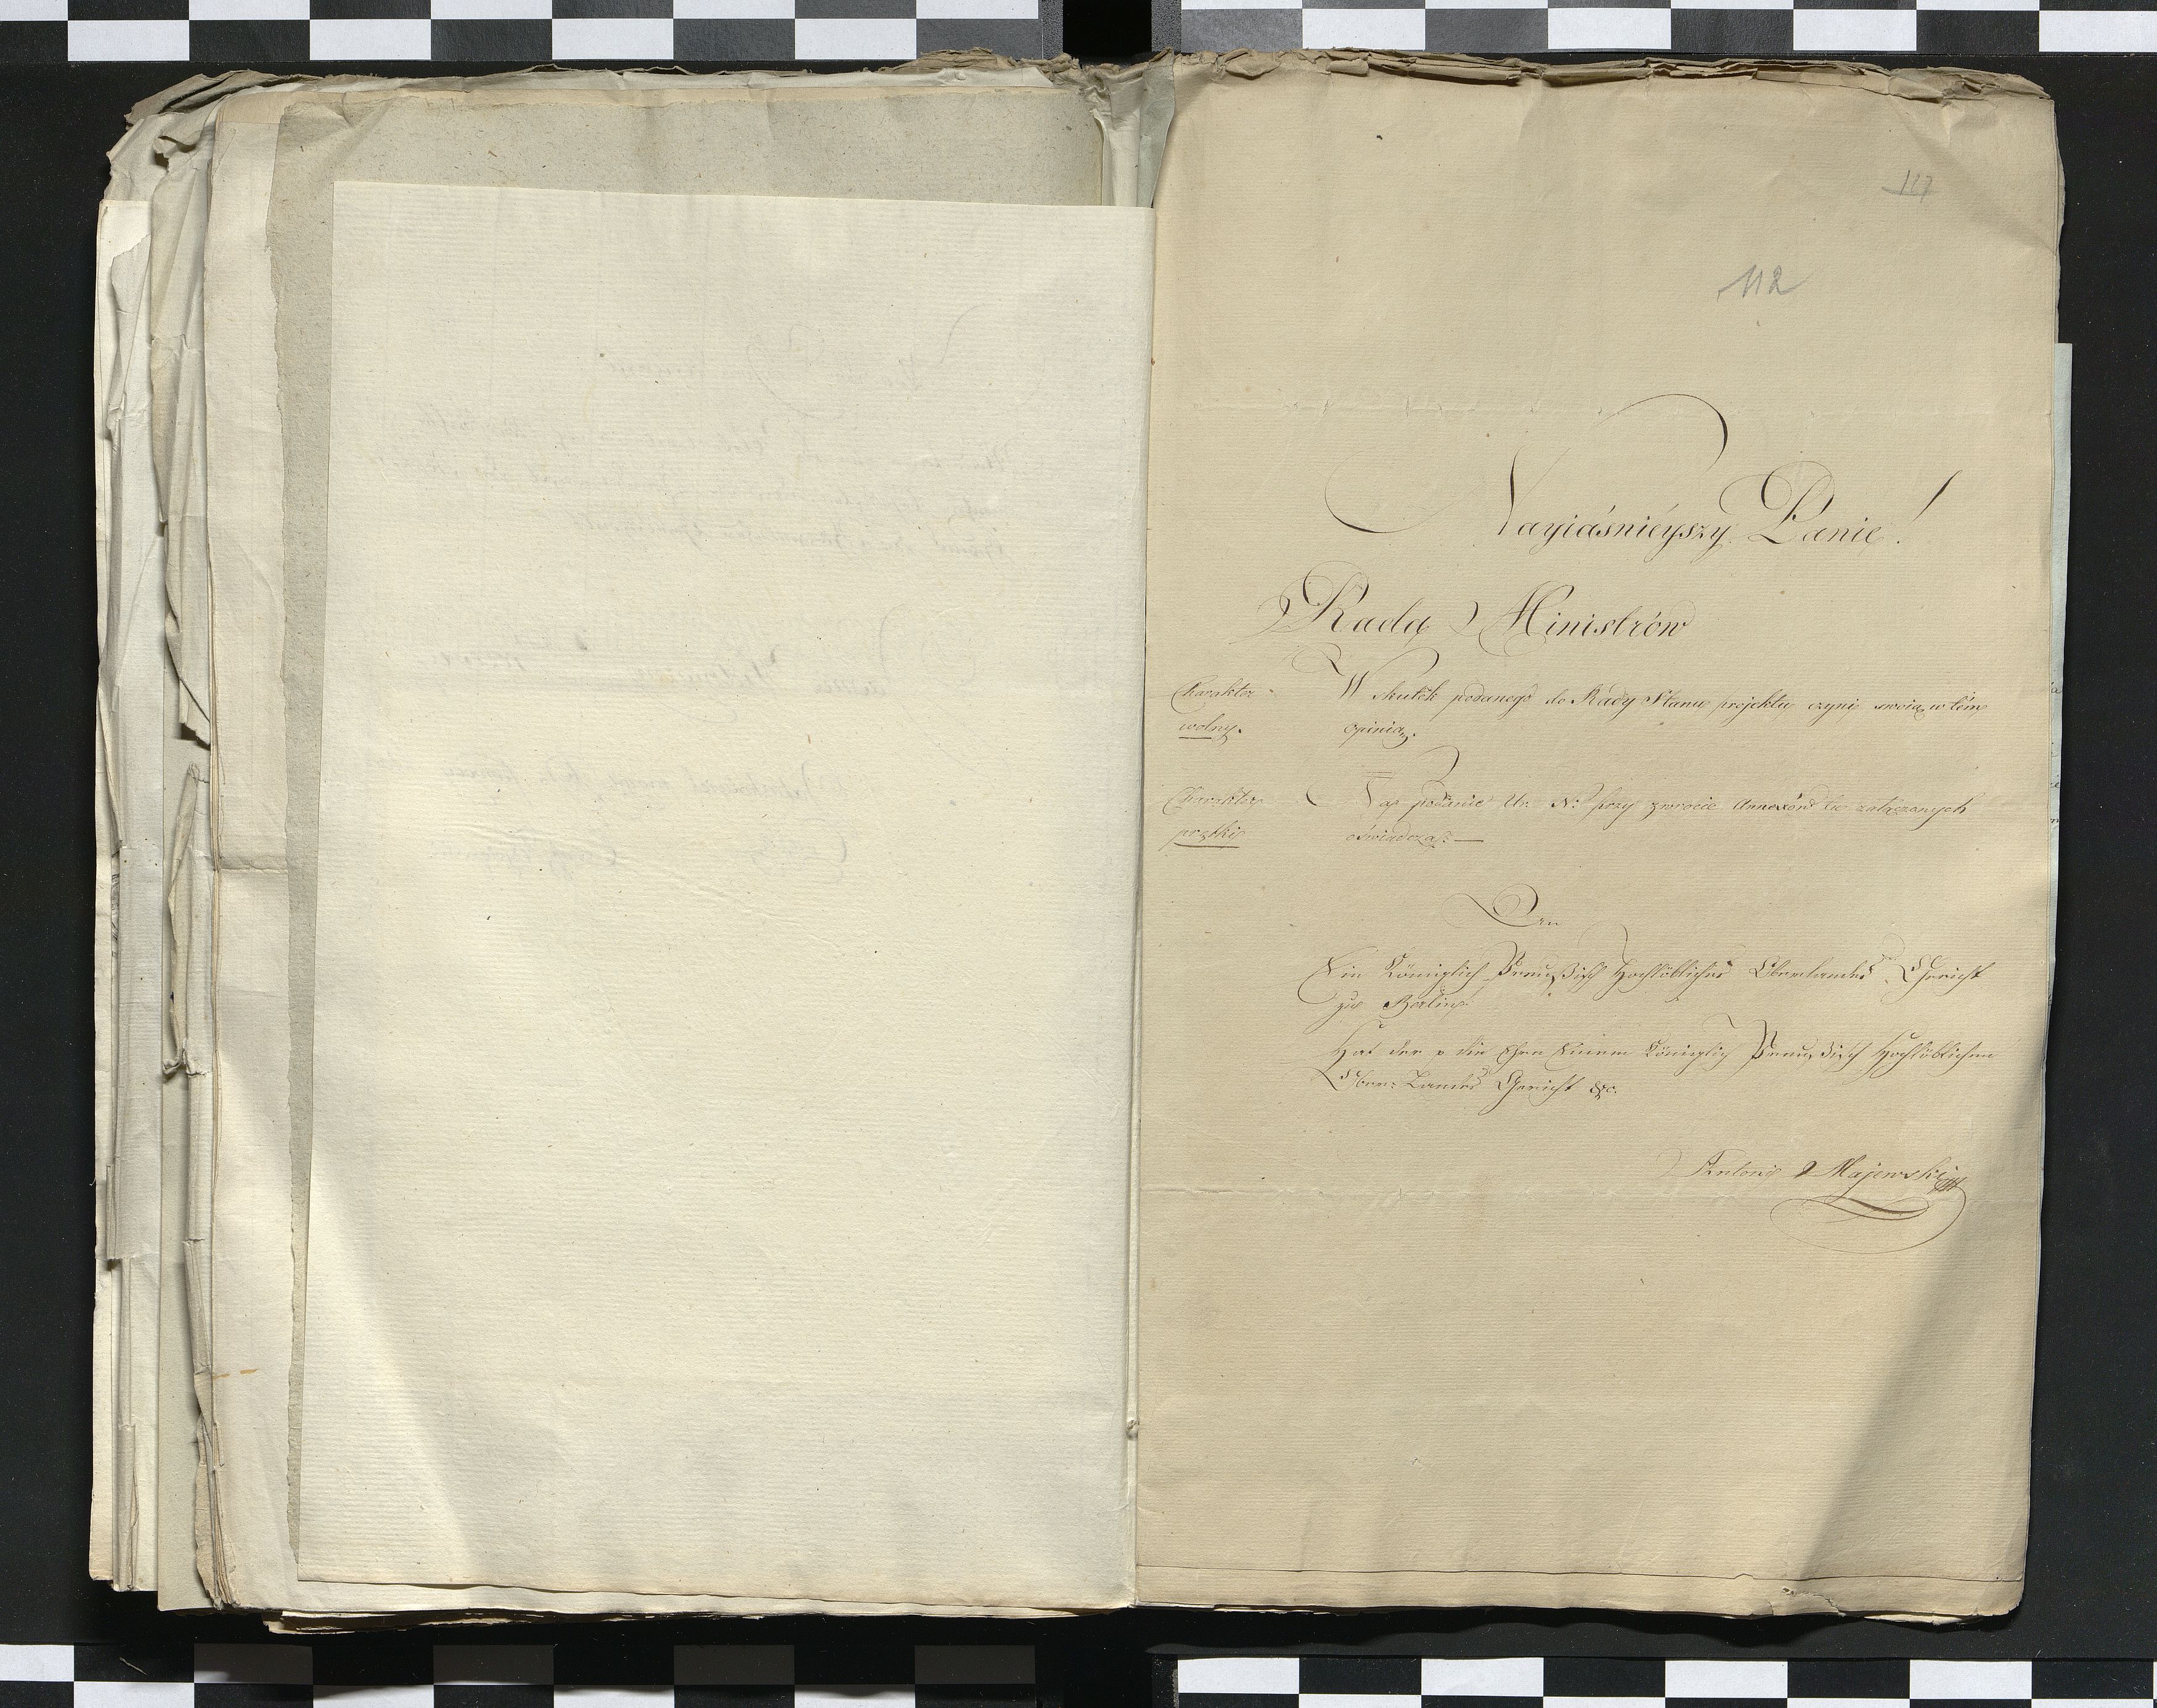 117
112
Nayiáśnieyszy Panie!
Rada Ministrów
Charakter
wolny.
W skutek podanego do Rady Stanu projektu czyni swoią w tém
opinią.
Charakter
prętki
Na podanie Ur. N: przy zwrocie Annexów tu załączonych
oświadcza: —
An
Ein Königlich Preußisch Hochlöbliches Oberlandes Gericht
zu Berlin.
Hat der p die Ehre Einem Königlich Preußisch Hochlöblichen
Ober-Landes Gericht &c.
Antoni Majewski